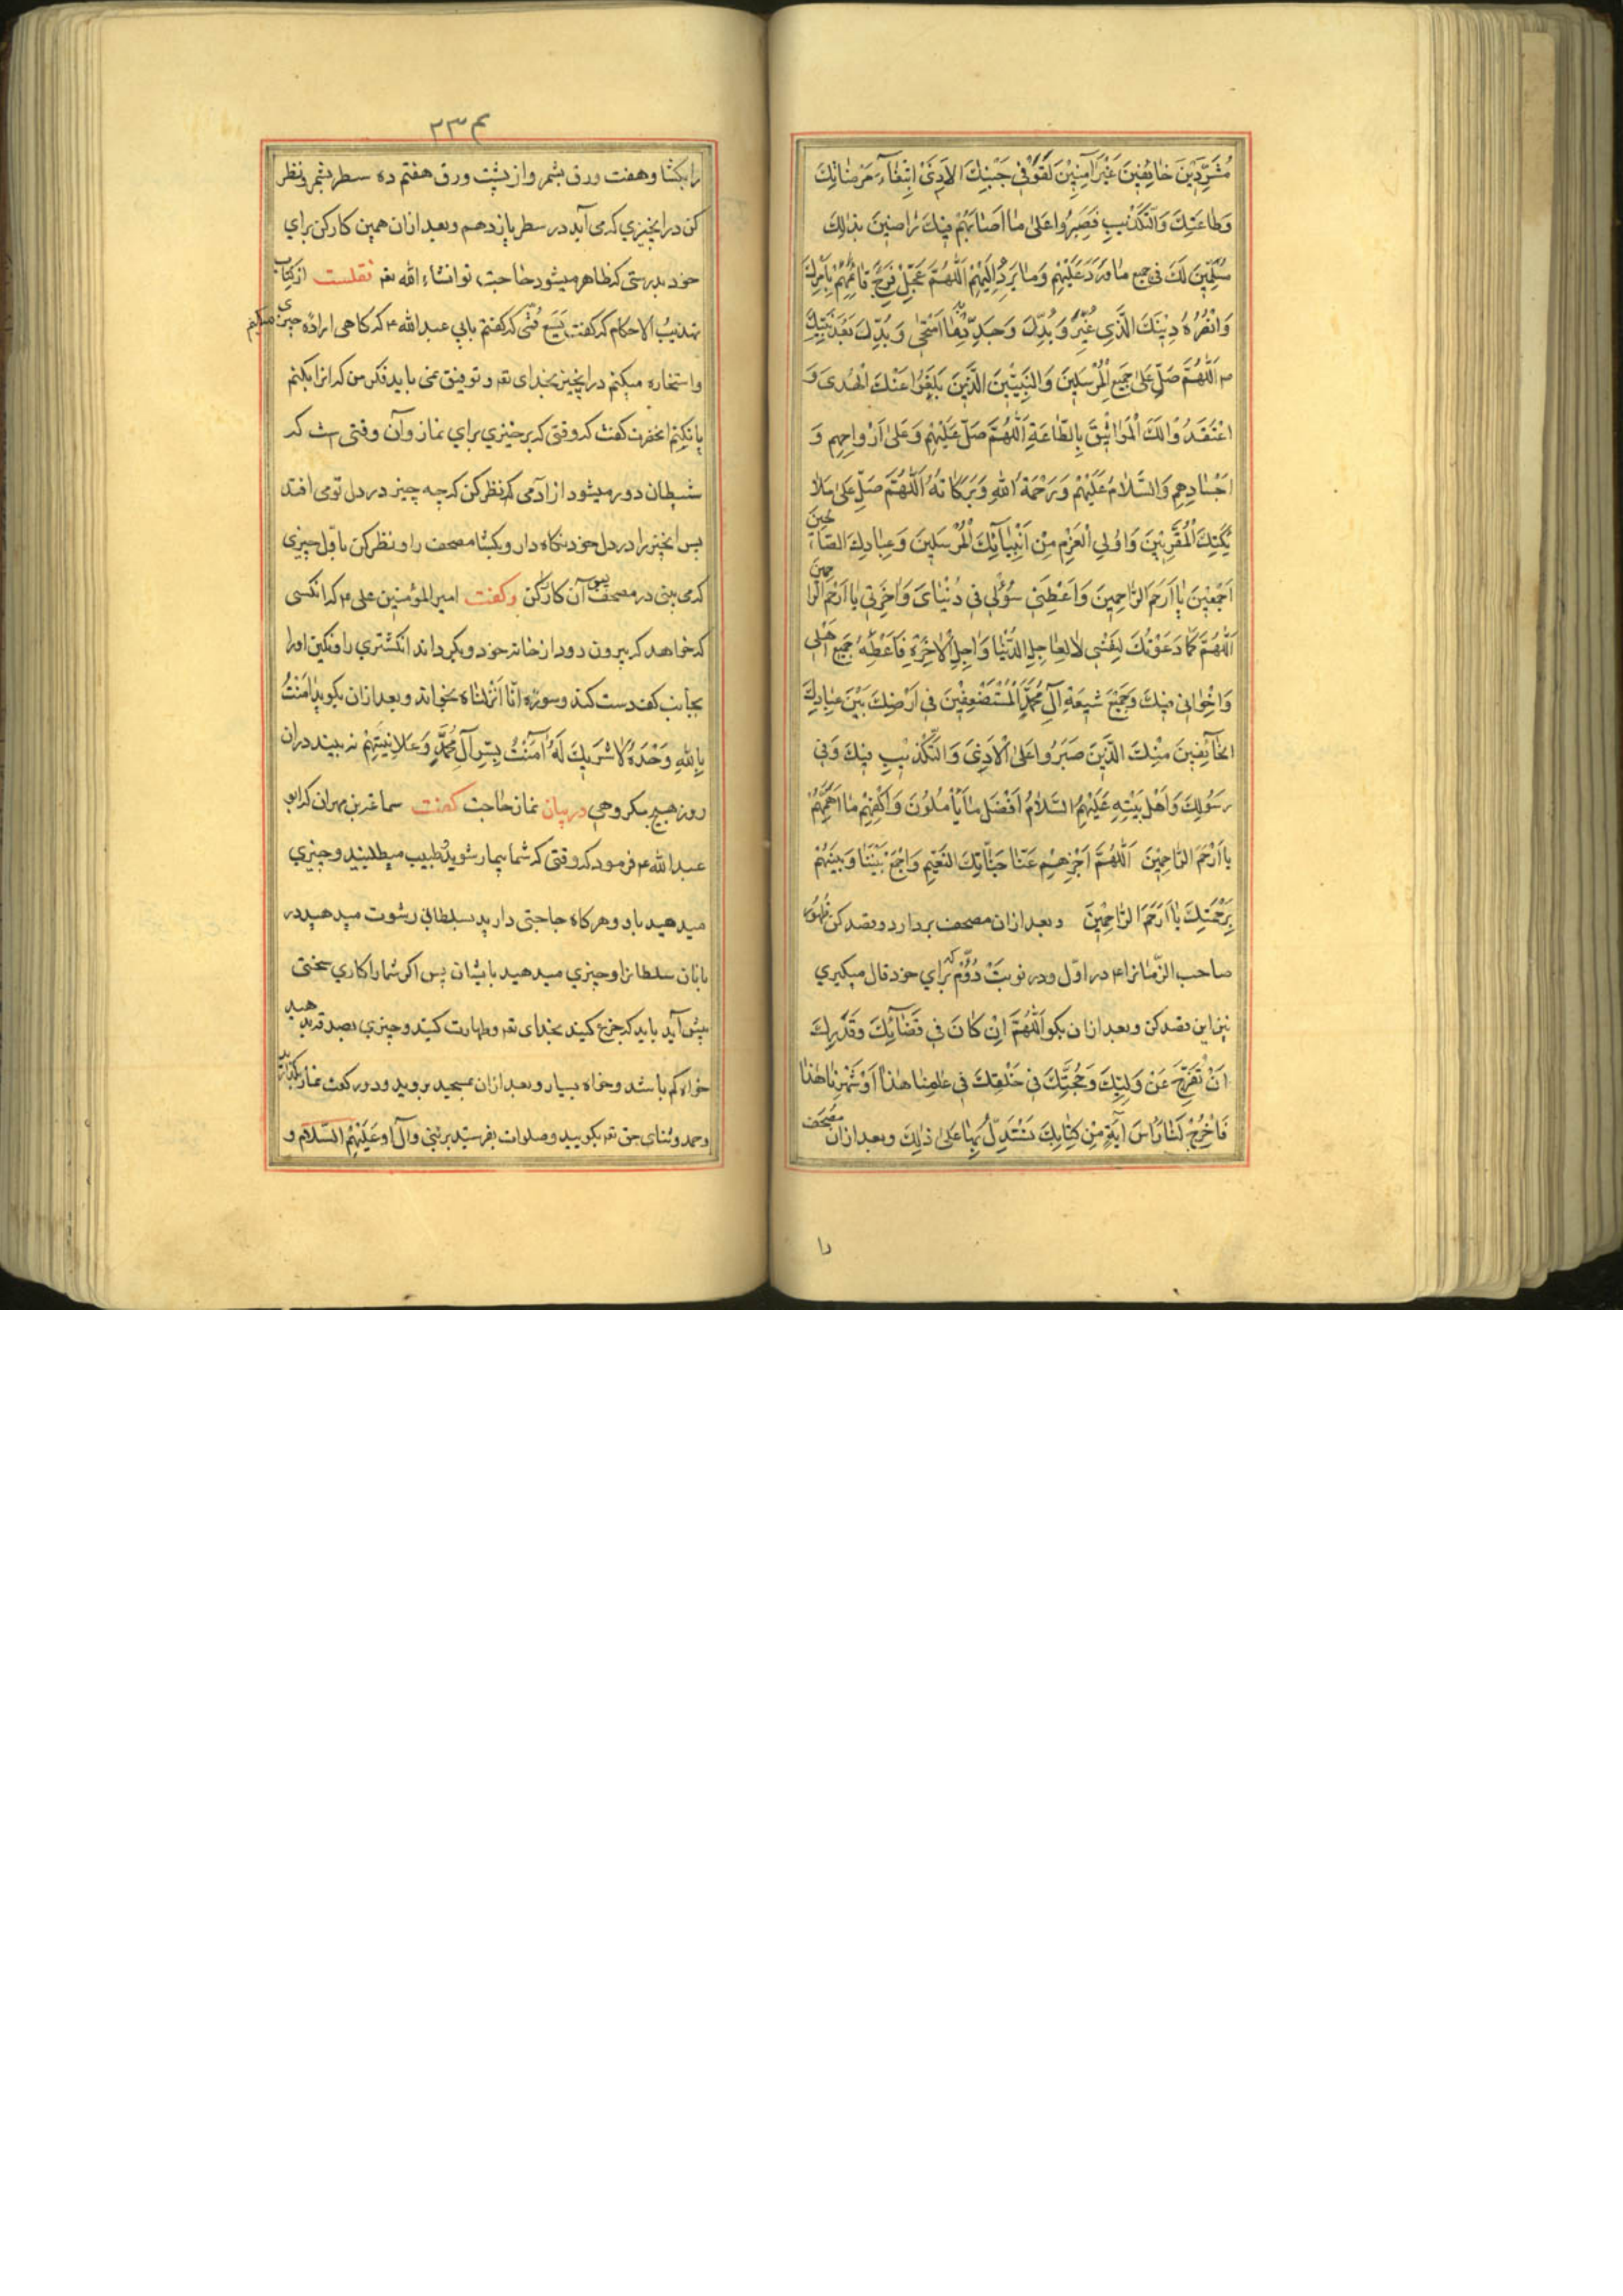 مُشَرَّدِينَ خَائِفِينَ غَيْرَ آمِنِينَ لَقَوْا فِي جَنْبِكَ الْأَذَىٰ ابْتِغَاءَ مَرْضَاتِكَ
وَطَاعَتِكَ وَالتَّكْذِيبِ فَصَبَرُوا عَلَىٰ مَا اَصَابَهُمْ فِيكَ رَاضِينَ بِذَالِكَ
مُسَلِّمِينَ لَكَ فِي جميع مَا وَرَدَ عَلَيْهِمْ وَمَا يَرِدُ اِلَيْهِمْ اَللّٰهُمَّ عَجِّلْ فَرَجَ قَائِمِهِمْ بِاَمْرِكَ
وَانْصُرْهُ دِينَكَ الَّذِي غُيِّرَ وَبُدِّلَ وَجَدِّدْ بِهِ مَا امْتَحىٰ وَبُدِّلَ بَعْدَ نَبِيِّكَ
ص اَللّٰهُمَّ صَلِّ عَلىٰ جَمِيعِ الْمُرْسَلِينَ وَالنَّبِيِّينَ الَّذِينَ بَلَّغُوا عَنْكَ الْهُدىٰ وَ
اعْتَقَدُوا لَكَ الْمَوَاثِيقَ بِالطَّاعَةِ اَللّٰهُمَّ صَلِّ عَلَيْهِمْ وَعَلىٰ اَرْوَاحِهِم وَ
اَجْسَادِهِم وَالسَّلَامُ عَلَيْهِمْ وَرَحْمَةُ اللهِ وَبَرَكَاتُهُ اَللّٰهُمَّ صَلِّ عَلىٰ مَلَا
ئِكَتِكَ الْمُقَرَّبِينَ وَاُولِي الْعَزْمِ مِنْ اَنْبِيَائِكَ الْمُرْسَلِينَ وَعِبَادِكَ الصَّالِحِينَ
اَجْمَعِينَ يَا اَرْحَمَ الرَّاحِمِينَ وَاَعْطِنِي سُؤْلِي فِي دُنْيَايَ وَاٰخِرَتِي يَا اَرْحَمَ الرَّاحِمِينَ
اَللّٰهُمَّ كَمَا دَعَوْتُكَ لِنَفْسِي لِعَاجِلِ الدُّنْيَا وَاٰجِلِ الْاٰخِرَةِ فَاَعْطِهِ جَمِيعَ اَهْلِي
وَاِخْوَانِي فِيكَ وَجَمِيعَ شِيعَةِ آلِ مُحَمَّدٍ الْمُسْتَضْعَفِينَ فِي اَرْضِكَ بَيْنَ عِبَادِكَ
الْخَائِفِينَ مِنْكَ الَّذِينَ صَبَرُوا عَلىٰ الْاَذىٰ وَالتَّكْذِيبِ فِيكَ وَفِي
رَسُولِكَ وَاَهْلِ بَيْتِهِ عَلَيْهِمُ السَّلَامُ اَفْضَلَ مَا يَاْمُلُونَ وَاكْفِهِمْ مَا اَهَمَّهُمْ
يَا اَرْحَمَ الرَّاحِمِينَ اَللّٰهُمَّ اَجْزِهِمْ عَنَّا جَنَّاتِكَ النَّعِيمِ وَاجْمَعْ بَيْنَنَا وَبَيْنَهُمْ
بِرَحْمَتِكَ يَا اَرْحَمَ الرَّاحِمِينَ وبعد ازان مصحف بردارد وقصد کن ظهور
صاحب الزّمانرا ع در اوّل ودر نوبت دوّم که برای خود فال میکیری
نیز این قصد کن وبعد ازان بکو اَللّٰهُمَّ اِنْ كَانَ فِي قَضَائِكَ وَقَدَرِكَ
اَنْ تُفَرِّجَ عَنْ وَلِيِّكَ وَحُجَّتِكَ فِي خَلْقِكَ فِي عَامِنَا هٰذَا اَوْ شَهْرِنَا هٰذَا
فَاَخْرِجْ لَنَا رَأْسَ آيَةٍ مِنْ كِتَابِكَ نَسْتَدِلُّ بِهَا عَلىٰ ذٰلِكَ وبعد ازان مصحف
را
٢٣٤
را بکشا وهفت ورق بشمر واز پشت ورق هفتم ده سطر بشمر ونظر
کن در انچیزی که می آید در سطر یازدهم وبعد ازان همین کار کن برای
خود بدرستی که ظاهر میشود حاجت تو انشاء الله تعم نقلست از کتاب
تهذیب الاحکام که کفت یسع قمّی که کفتم بابی عبدالله ع که کاهی اراده چیزی میکنم
واستخاره میکنم در انچیز بخدای تعم وتوفیق نمی یابد فکر من که انرا بکنم
یا نکنم انحضرت کفت که وقتی که برخیزی برای نماز وآن وقتی ست که
شیطان دور میشود از آدمی که نظر کن که چه چیز در دل تو می افتد
پس انچیز را در دل خود نکاه دار وبکشا مصحف را ونظر کن باوّل چیزی
که می بینی در مصحف پس آن کار را کن وکفت امیر المؤمنین علی ع که انکسی
که خواهد که بیرون رود از خانه خود وبکرداند انکشتری را ونکین اورا
بجانب کف دست کند وسوره انّا اَنْزَلْنَاهُ بخواند وبعد ازان بکوید اٰمَنْتُ
بِاللهِ وَحْدَهُ لَا شَرِيكَ لَهُ اٰمَنْتُ بِسِرِّ آلِ مُحَمَّدٍ وَعَلَانِيَتِهِمْ نه بیند دران
روز هیچ مکروهی در بیان نماز حاجت کفت سماعة بن مهران که ابو
عبدالله ع فرمود که وقتی که شما بیمار شوید طبیب میطلبید وچیزی
میدهید باو وهر کاه حاجتی دارید بسلطانی رشوت میدهید در
بانان سلطانرا وچیزی میدهید بایشان پس اکر شما را کاری سختی
پیش آید باید که جزع کنید بخدای تعم وطهارت کنید وچیزی بصدقه بدهید
خواه کم باشد وخواه بسیار وبعد ازان بمسجد بروید ودو رکعت نماز بکذارید
وحمد وثنای حق تعم بکویید وصلوات بفرستید بر نبی وآل او عَلَيْهِمُ السَّلَام و